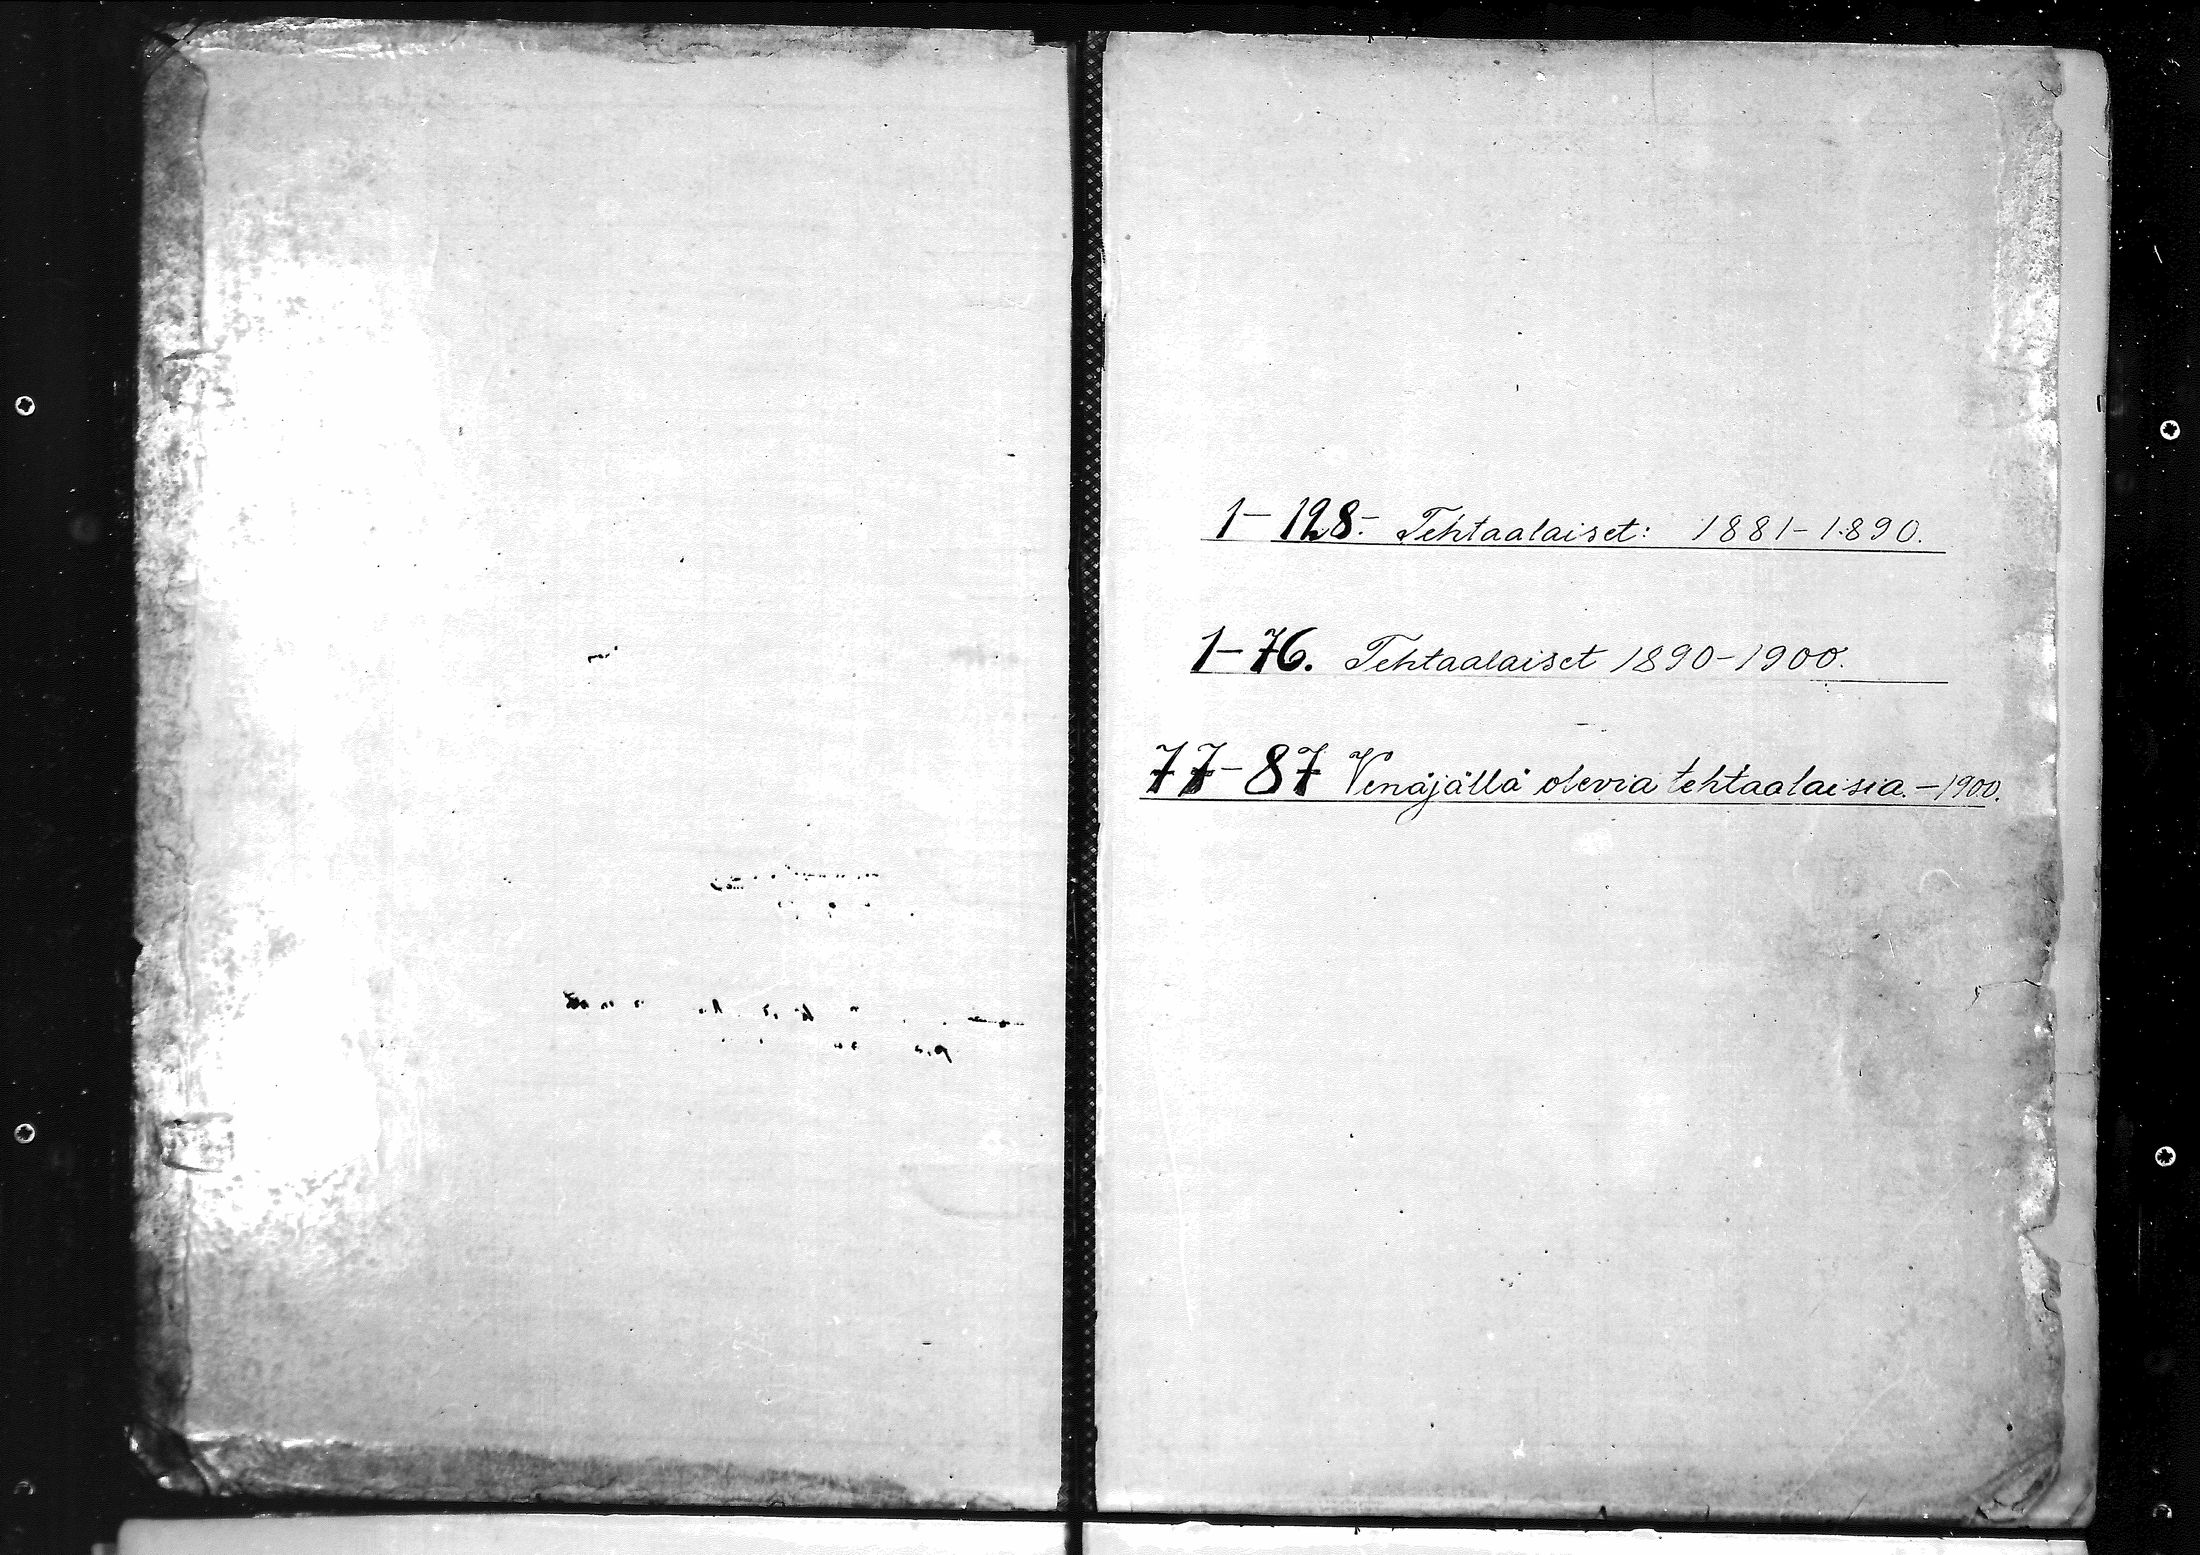 1-128.- Tehtaalaiset: 1881-1890.
1-76. Tehtaalaiset 1890-1900.
77-87 Venäjällä olevia tehtaalaisia.-1900.